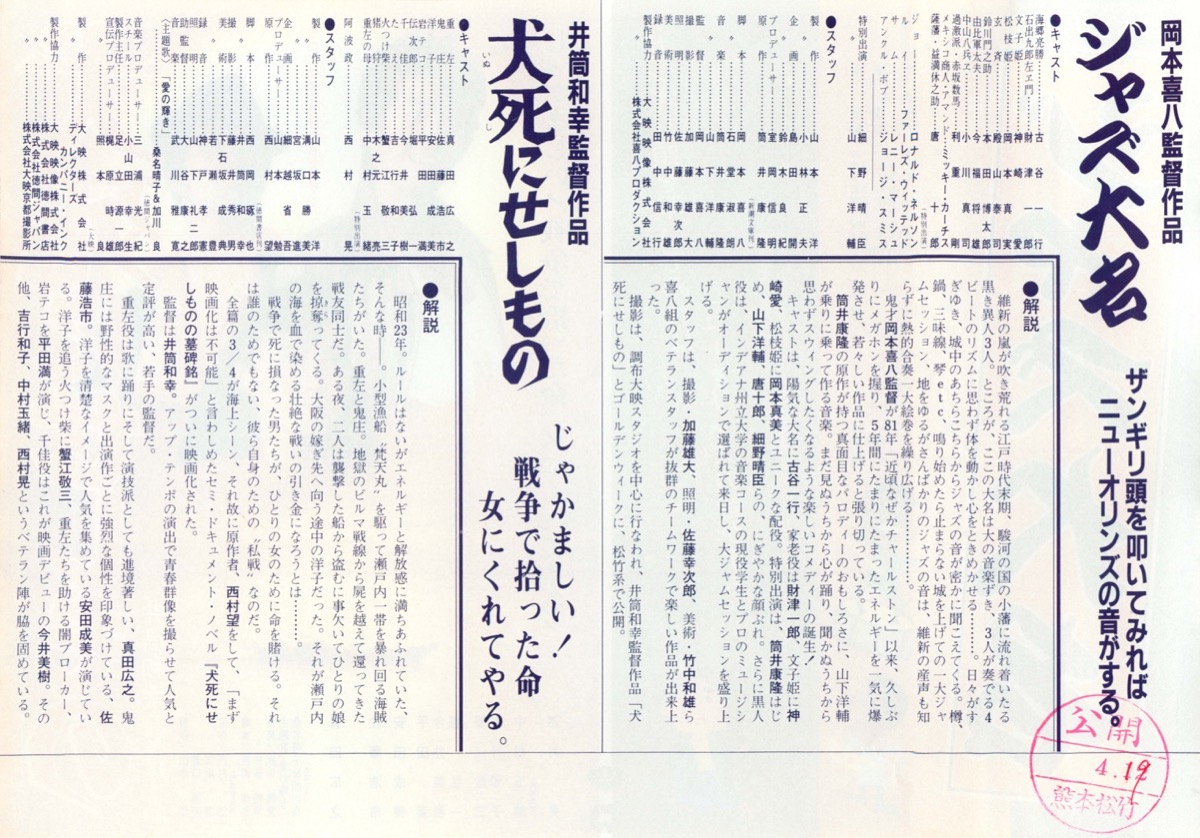 岡本喜八監督作品
ジャズ大名
ザンギリ頭を叩いてみれば
ニューオリンズの音がする。
●キャスト
海郷亮勝…………古谷一行
石出九郎左ヱ門…………財津一郎
文子姫…………神崎愛
松枝姫…………岡本真実
玄斉…………殿山泰司
鈴川門之助…………本田博太郎
由比軍太夫…………今福将雄
中山八兵ヱ…………小川真司
過激派・赤坂数馬…………利重剛
メキシコ商人・アマンド……ミッキー・カーチス
薩藩・益満休之助…………唐十郎
(特別出演)
ジョー…………ロナルド・ネルソン
ルイ…………ファーレズ・ウィッテッド
サム…………レニー・マーシュ
アンクル・ボブ…………ジョージ・スミス
特別出演…………細野晴臣
〃…………山下洋輔
●スタッフ
製作…………山本洋
〃…………小林正夫
企画
プロデューサー
原作…………筒井康隆
(新潮文庫刊)
脚本…………岡本喜八
〃…………石堂淑朗
音楽…………筒井康隆
〃…………山下洋輔
監督…………岡本喜八
撮影…………加藤雄大
照明…………佐藤幸次郎
美術…………竹中和雄
録音…………田中信行
製作協力…………大映映像株式会社
株式会社喜八プロダクション
●解説
維新の嵐が吹き荒れる江戸時代末期、駿河の国の小藩に流れ着いたる
黒き異人3人。ところが、ここの大名は大の音楽ずき、3人が奏でる4
ビートのリズムに思わず体を動かし心をときめかせる………。日々がす
ぎゆき、城中のあちらこちらからジャズの音が密かに聞こえてくる。樽、
鍋、三味線、琴etc、鳴り始めたら止まらない城を上げての一大ジャ
ムセッション、地をゆるがさんばかりのジャズの音は、維新の産声も知
らずに熱的合奏一大絵巻を繰り広げる………。
鬼才岡本喜八監督が81年「近頃なぜかチャールストン」以来、久しぶ
りにメガホンを握り、5年間にたまりにたまったエネルギーを一気に爆
発させ、若々しい作品に仕上げると張り切っている。
筒井康隆の原作が持つ真面目なパロディーのおもしろさに、山下洋輔
が乗りに乗って作る音楽。まだ見ぬうちから心が踊り、聞かぬうちから
思わずスウィングしたくなるような楽しいコメディーの誕生!
キャストは、陽気な大名に古谷一行、家老役は財津一郎、文子姫に神
崎愛、松枝姫に岡本真美とユニークな配役。特別出演は、筒井康隆はじ
め、山下洋輔、唐十郎、細野晴臣らの、にぎやかな顔ぶれ。さらに黒人
役は、インデアナ州立大学の音楽コースの現役学生とプロのミュージシ
ャンがオーディションで選ばれて来日し、大ジャムセッションを盛り上
げる。
スタッフは、撮影・加藤雄大、照明・佐藤幸次郎、美術・竹中和雄ら
喜八組のベテランスタッフが抜群のチームワークで楽しい作品が出来上
った。
撮影は、調布大映スタジオを中心に行なわれ、井筒和幸監督作品「犬
死にせしもの」とゴールデンウィークに、松竹系で公開。
公開
4.19
熊本松竹
井筒和幸監督作品
犬死にせしもの
いぬじ
じゃかましい!
戦争で拾った命
女にくれてやる。
●キャスト
重左…………真田広之
鬼庄…………佐藤浩市
洋子…………安田成美
岩テコ…………平田満
伝次郎…………堀弘一
千佳…………今井美樹
火つけ柴…………蟹江敬三
猪
重左の母…………中村玉緒
(特別出演)
阿波政…………西村晃
●スタッフ
製作…………山本洋
〃…………溝口勝美
企画
プロデューサー
原作…………西村望
(徳間書店刊)
脚本…………西岡琢也
〃…………井筒和幸
撮影…………藤井秀男
美術…………下石坂成典
録音
照明
監督…………井筒和幸
〈主題歌〉「愛の輝き」………桑名晴子&加川良
(徳間ジャパン)
音楽プロデューサー
製作主任
宣伝プロデューサー
製作…………大映株式会社
ディレクターズ・カンパニー・インク
製作協力…………大映映像株式会社
〃…………株式会社徳間書店
〃…………株式会社徳間ジャパン
〃…………株式会社大映京都撮影所
●解説
昭和23年。ルールはないがエネルギーと解放感に満ちあふれていた、
そんな時――。小型漁船〝梵天丸〟を駆って瀬戸内一帯を暴れ回る海賊
たちがいた。重左と鬼庄。地獄のビルマ戦線から屍を越えて還ってきた
戦友同士だ。ある夜、二人は襲撃した船から盗むに事欠いてひとりの娘
を掠奪ってくる。大阪の嫁ぎ先へ向う途中の洋子だった。それが瀬戸内
の海を血で染める壮絶な戦いの引き金になろうとは………。
戦争で死に損なった男たちが、ひとりの女のために命を賭ける。それ
は誰のためでもない、彼ら自身のための〝私戦〟なのだ。
全篇の3/4が海上シーン、それ故に原作者、西村望をして、「まず
映画化は不可能」と言わしめたセミ・ドキュメント・ノベル『犬死にせ
しものの墓碑銘』がついに映画化された。
監督は井筒和幸。アップ・テンポの演出で青春群像を撮らせて人気と
定評が高い、若手の監督だ。
重左役は歌に踊りにそして演技派としても進境著しい、真田広之。鬼
庄には野性的なマスクと出演作ごとに強烈な個性を印象づけている、佐
藤浩市。洋子を清楚なイメージで人気を集めている安田成美が演じてい
る。洋子を追う火つけ柴に蟹江敬三、重左たちを助ける闇ブローカー、
岩テコを平田満が演じ、千佳役はこれが映画デビューの今井美樹。その
他、吉行和子、中村玉緒、西村晃というベテラン陣が脇を固めている。